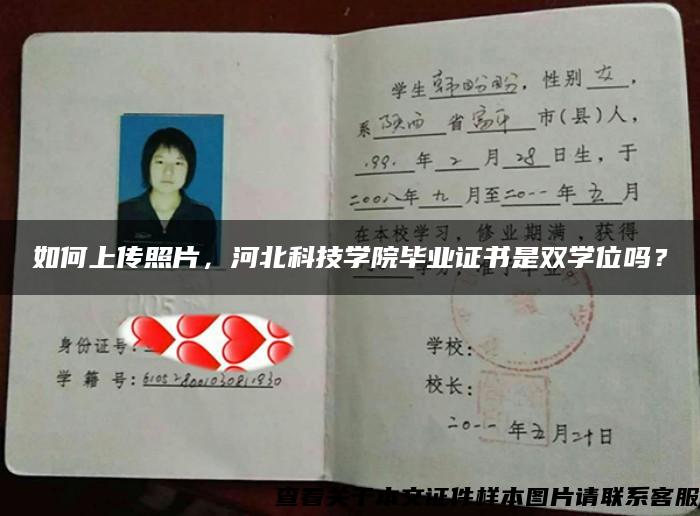 学生韩盼盼,性别女,
系陕西省富平市(县)人,
199.年2月28日生,于
二00八年九月至二0一一年五月
在本校学习,修业期满,获得
如何上传照片,河北科技学院毕业证书是双学位吗?
身份证号:
学校:
学籍号:610528001030811930
校长:
二0一一年五月二十日
查看关于本文证件样本图片请联系客服